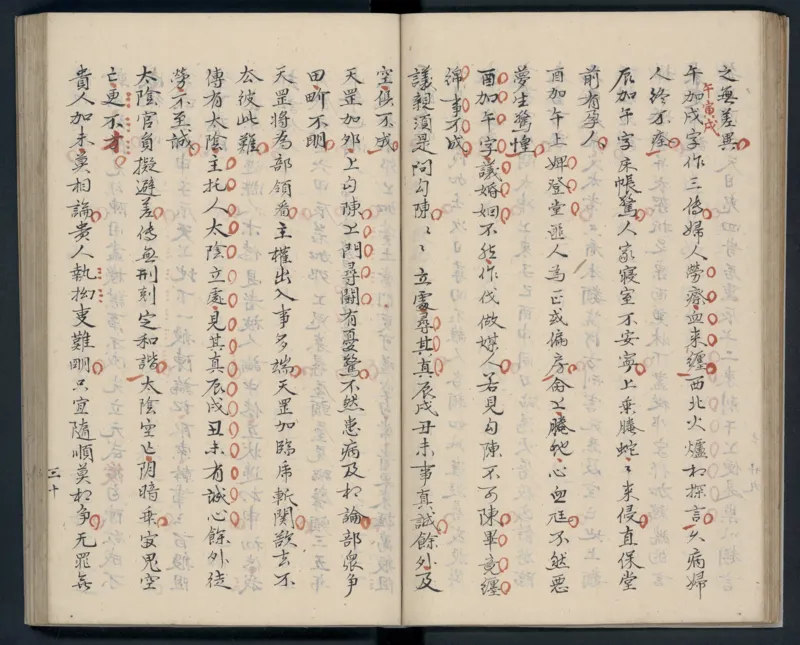 之無差異
午加戌字作三傳婦人勞瘵血來纏西北火爐相探言久病婦
午寅戌
人終不痊
辰加午字床帳驚人家寢室不安寧上乘騰蛇〻來侵宜保堂
前有孕人
酉加午上婢登堂匪人為正或偏房俞上騰蛇心血尫不然惡
夢生驚惶
酉加午字議婚姻不然作伐做媒人若見勾陳不可陳畢竟纏
綿事不成
議親須是問勾陳〻〻立處尋其真辰戌丑未事真誠餘外及
空俱不成
天罡加卯上勾陳上門尋鬧有憂驚不然患病及相論部眾爭
田畍不明
天罡將為部領番主權出入事多端天罡加臨廉斬関欲去不
去彼此難
傳有太陰主托人太陰立處見其真辰戌丑未有誠心餘外徒
勞不至誠
太陰官員擬避差傳無刑剋定和諧太陰空亡陰暗乖寂鬼空
亡更不才
貴人加未莫相論貴人執拗更難明只宜隨順莫相爭无罪無
三十